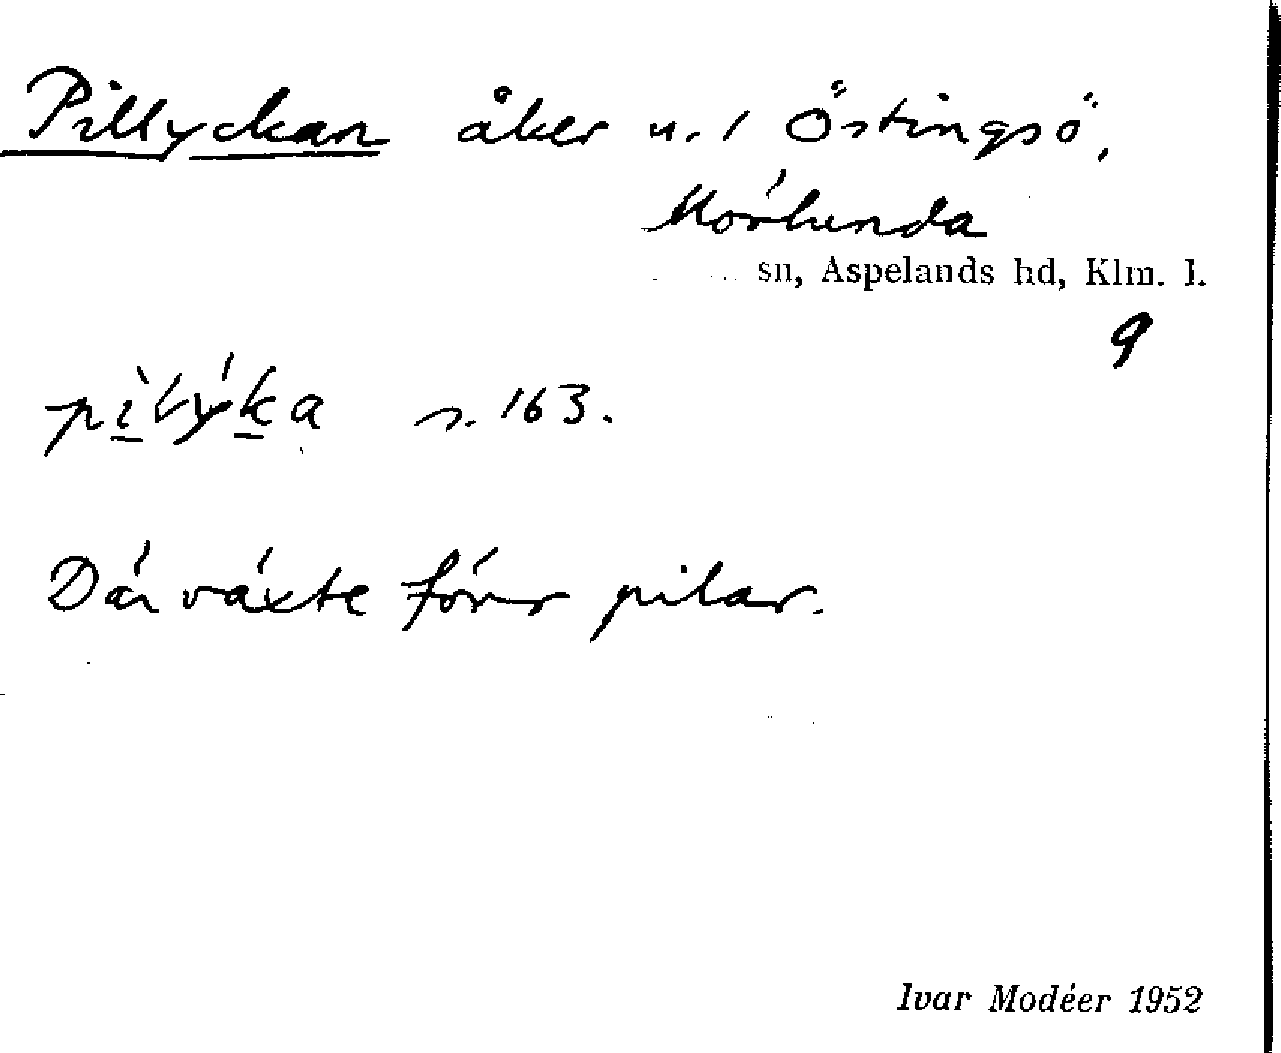 Pillyckan åker n. 1 Östingsö,
Mörlunda
sn, Aspelands hd, Klm. l.
9
pìlýka s. 163.
Där växte förr pilar.
Ivar Modéer 1952